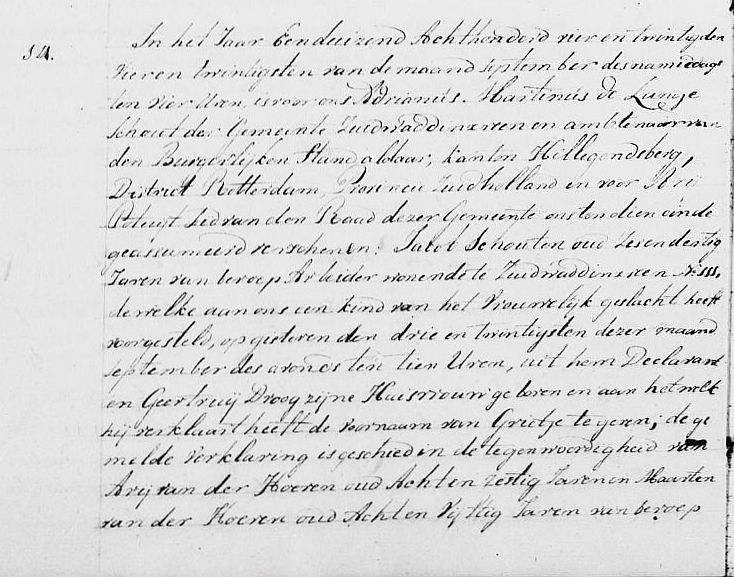 54. In het Jaar Eenduizend Achthonderd vier en twintig den
vier en twintigsten van de maand September des namiddags
ten vier Uren, is voor ons Adrianus Martinus de Lange
Schout der Gemeente Zuidwaddinxveen en ambtenaar van
den Burgerlijken Stand aldaar, Kanton Hillegondsberg,
District Rotterdam, Provincie Zuidholland en voor Arij
Lid van den Raad dezer Gemeente ons ten dien einde
geassumeerd verschenen: Jacob Schouten oud Zes en dertig
Jaren van beroep Arbeider wonende te Zuidwaddinxveen No 111,
dewelke aan ons een kind van het Vrouwelijk geslacht heeft
voorgesteld, op gisteren den drie en twintigsten dezer maand
September des avonds ten tien Uren, uit hem Declarant
en Geertruij Droog zijne Huisvrouw geboren en aan het welk
hij verklaart heeft de voornaam van Grietje te geven; de ge
melde verklaring is geschied in de tegenwoordigheid van
Arij van der Koeren oud Acht en zestig Jaren en Maarten
van der Koeren oud Acht en Vijftig Jaren van beroep